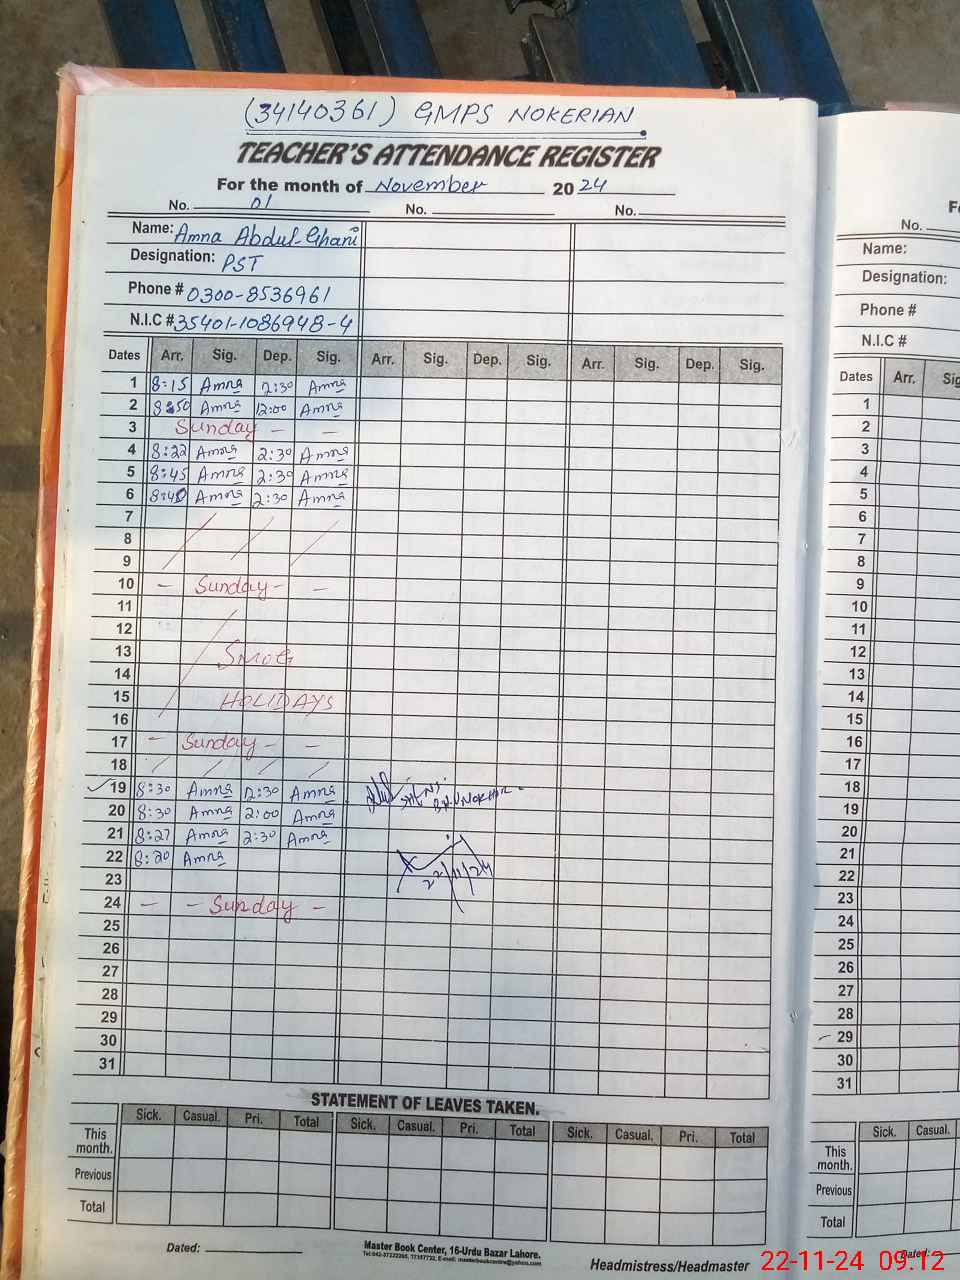 (34140361) GMPS NOKERIAN
TEACHER'S ATTENDANCE REGISTER
For the month of November 2024
No. 01 No. No.
Name: Amna Abdul-Ghani
Designation: PST
Phone # 0300-8536961
N.I.C # 35401-1086948-4
Dates Arr. Sig. Dep. Sig. Arr. Sig. Dep. Sig. Arr. Sig. Dep. Sig.
1 8:15 Amna 2:30 Amna
2 8:50 Amna 12:00 Amna
3 Sunday - -
4 8:22 Amna 2:30 Amna
5 8:45 Amna 2:30 Amna
6 8:40 Amna 2:30 Amna
7
8
9
10 - Sunday - -
11
12
13 SMOG
14
15 HOLIDAYS
16
17 - Sunday - -
18
19 8:30 Amna 12:30 Amna
20 8:30 Amna 2:00 Amna
21 8:27 Amna 2:30 Amna
22 8:20 Amna 22/11/24
23
24 - - Sunday -
25
26
27
28
29
30
31
STATEMENT OF LEAVES TAKEN.
Sick. Casual. Pri. Total Sick. Casual. Pri. Total Sick. Casual. Pri. Total
This month.
Previous
Total
Dated:
Master Book Center, 16-Urdu Bazar Lahore.
Headmistress/Headmaster
No.
Name:
Designation:
Phone #
N.I.C #
Dates Arr.
1
2
3
4
5
6
7
8
9
10
11
12
13
14
15
16
17
18
19
20
21
22
23
24
25
26
27
28
29
30
31
Sick. Casual.
This month.
Previous
Total
Dated:
22-11-24 09.12